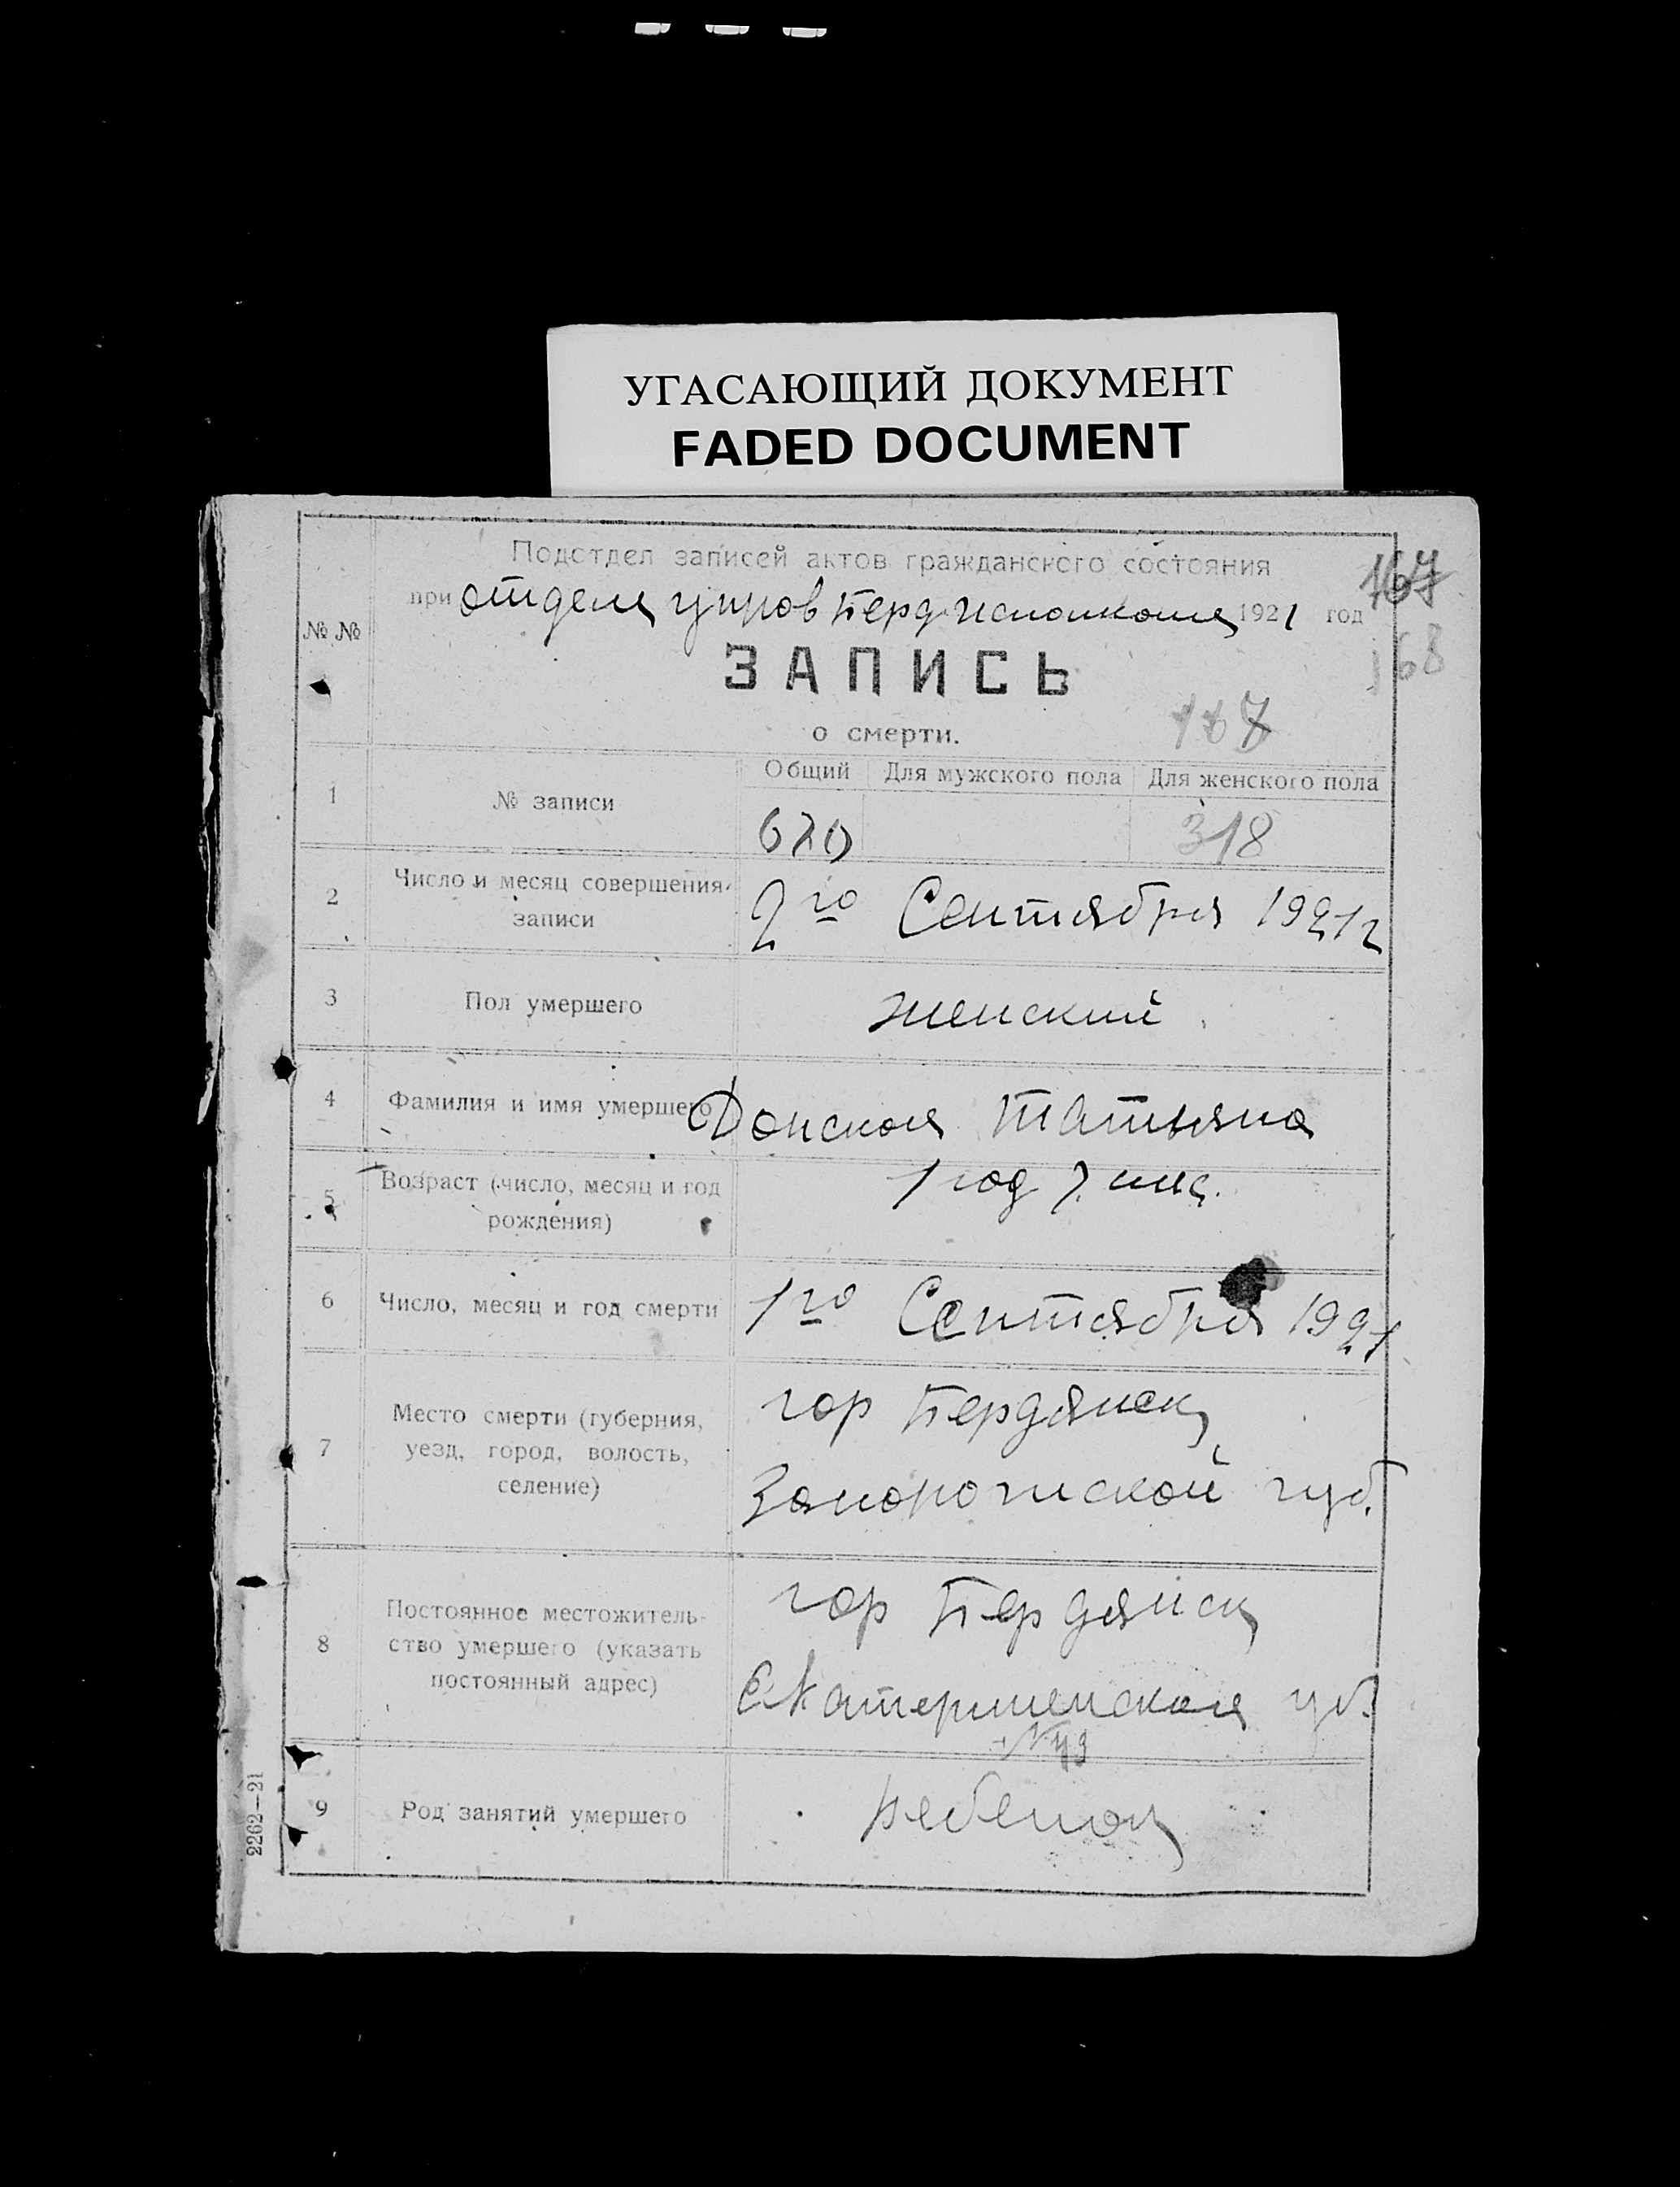 УГАСАЮЩИЙ ДОКУМЕНТ
FADED DOCUMENT
Подотдел записей актов гражданского состояния
167
при отделе управ Берд исполкома 1921 год
№ №
168
ЗАПИСЬ
о смерти.
1 № записи Общий Для мужского пола Для женского пола
318
2 Число и месяц совершения записи
2го Сентября 1921 г
3 Пол умершего женский
4 Фамилия и имя умершего Донская Татьяна
5 Возраст (число, месяц и год рождения)
1 год 7 мес.
6 Число, месяц и год смерти 1го Сентября 1921
7 Место смерти (губерния, уезд, город, волость, селение)
гор Бердянск
Запорожской губ.
8 Постоянное местожитель-ство умершего (указать постоянный адрес)
гор Бердянск
Екатерининская ул.
9 Род занятий умершего ребенок
2262—21